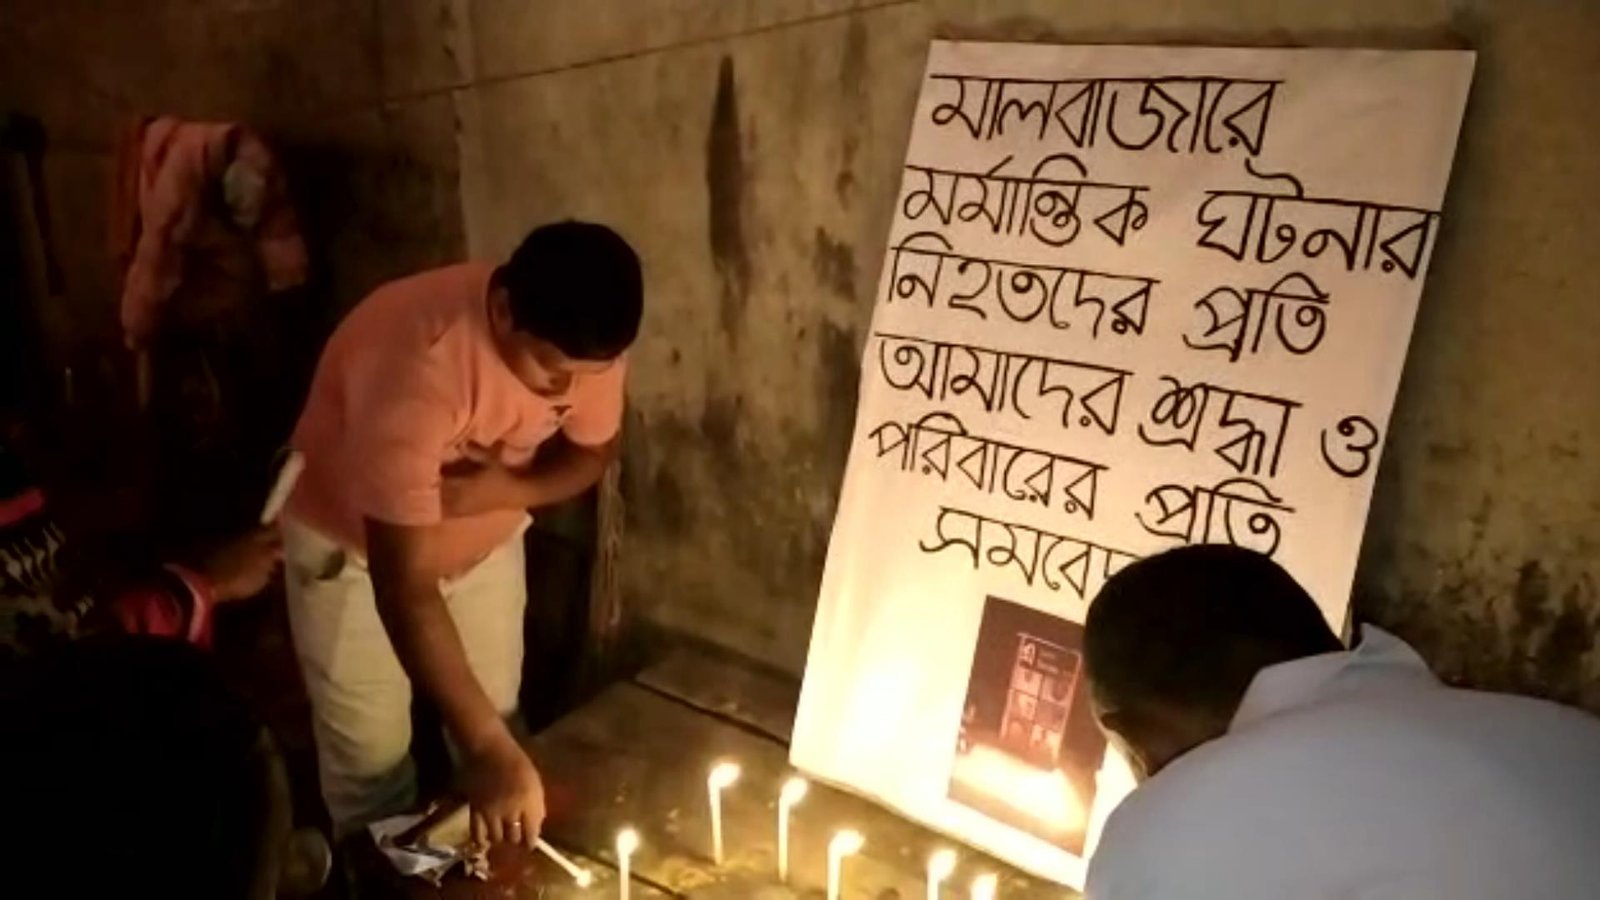 মালবাজারে
মর্মান্তিক ঘটনার
নিহতদের প্রতি
আমাদের শ্রদ্ধা ও
পরিবারের প্রতি